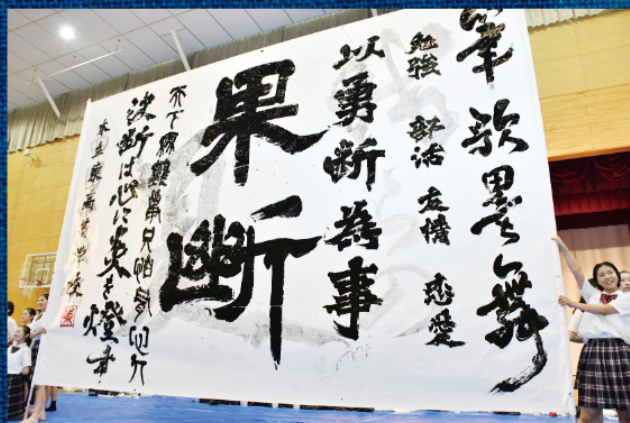 筆歌墨舞
勉強 部活 友情 恋愛
以勇断為事
果斷
天下無難事只怕有心人
決断は心に炎を燈す
本庄東高等学校